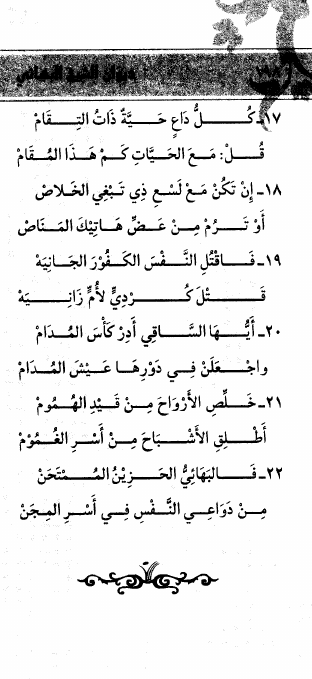 ديوان الشيخ البهائي
١٧ـ كُلُّ دَاعٍ حَيَّةٌ ذَاتُ التِقَامْ
قُلْ: مَعَ الحَيَّاتِ كَمْ هَذَا المُقَامْ
١٨ـ إِنْ تَكُنْ مَعْ لَسْعِ ذِي تَبْغِي الخَلَاصْ
أَوْ تَرُمْ مِنْ عَضِّ هَاتِيْكَ المَنَاصْ
١٩ـ فَاقْتُلِ النَّفْسَ الكَفُوْرَ الجَانِيَهْ
قَتْلَ كُرْدِيٍّ لأُمٍّ زَانِيَهْ
٢٠ـ أَيُّهَا السَّاقِي أَدِرْ كَأْسَ المُدَامْ
واجْعَلَنْ فِي دَوْرِهَا عَيْشَ المُدَامْ
٢١ـ خَلِّصِ الأَرْوَاحَ مِنْ قَيْدِ الهُمُومْ
أَطْلِقِ الأَشْبَاحَ مِنْ أَسْرِ الغُمُوْمْ
٢٢ـ فَالبَهَائِيُّ الحَزِيْنُ المُمْتَحَنْ
مِنْ دَوَاعِي النَّفْسِ فِي أَسْرِ المِحَنْ